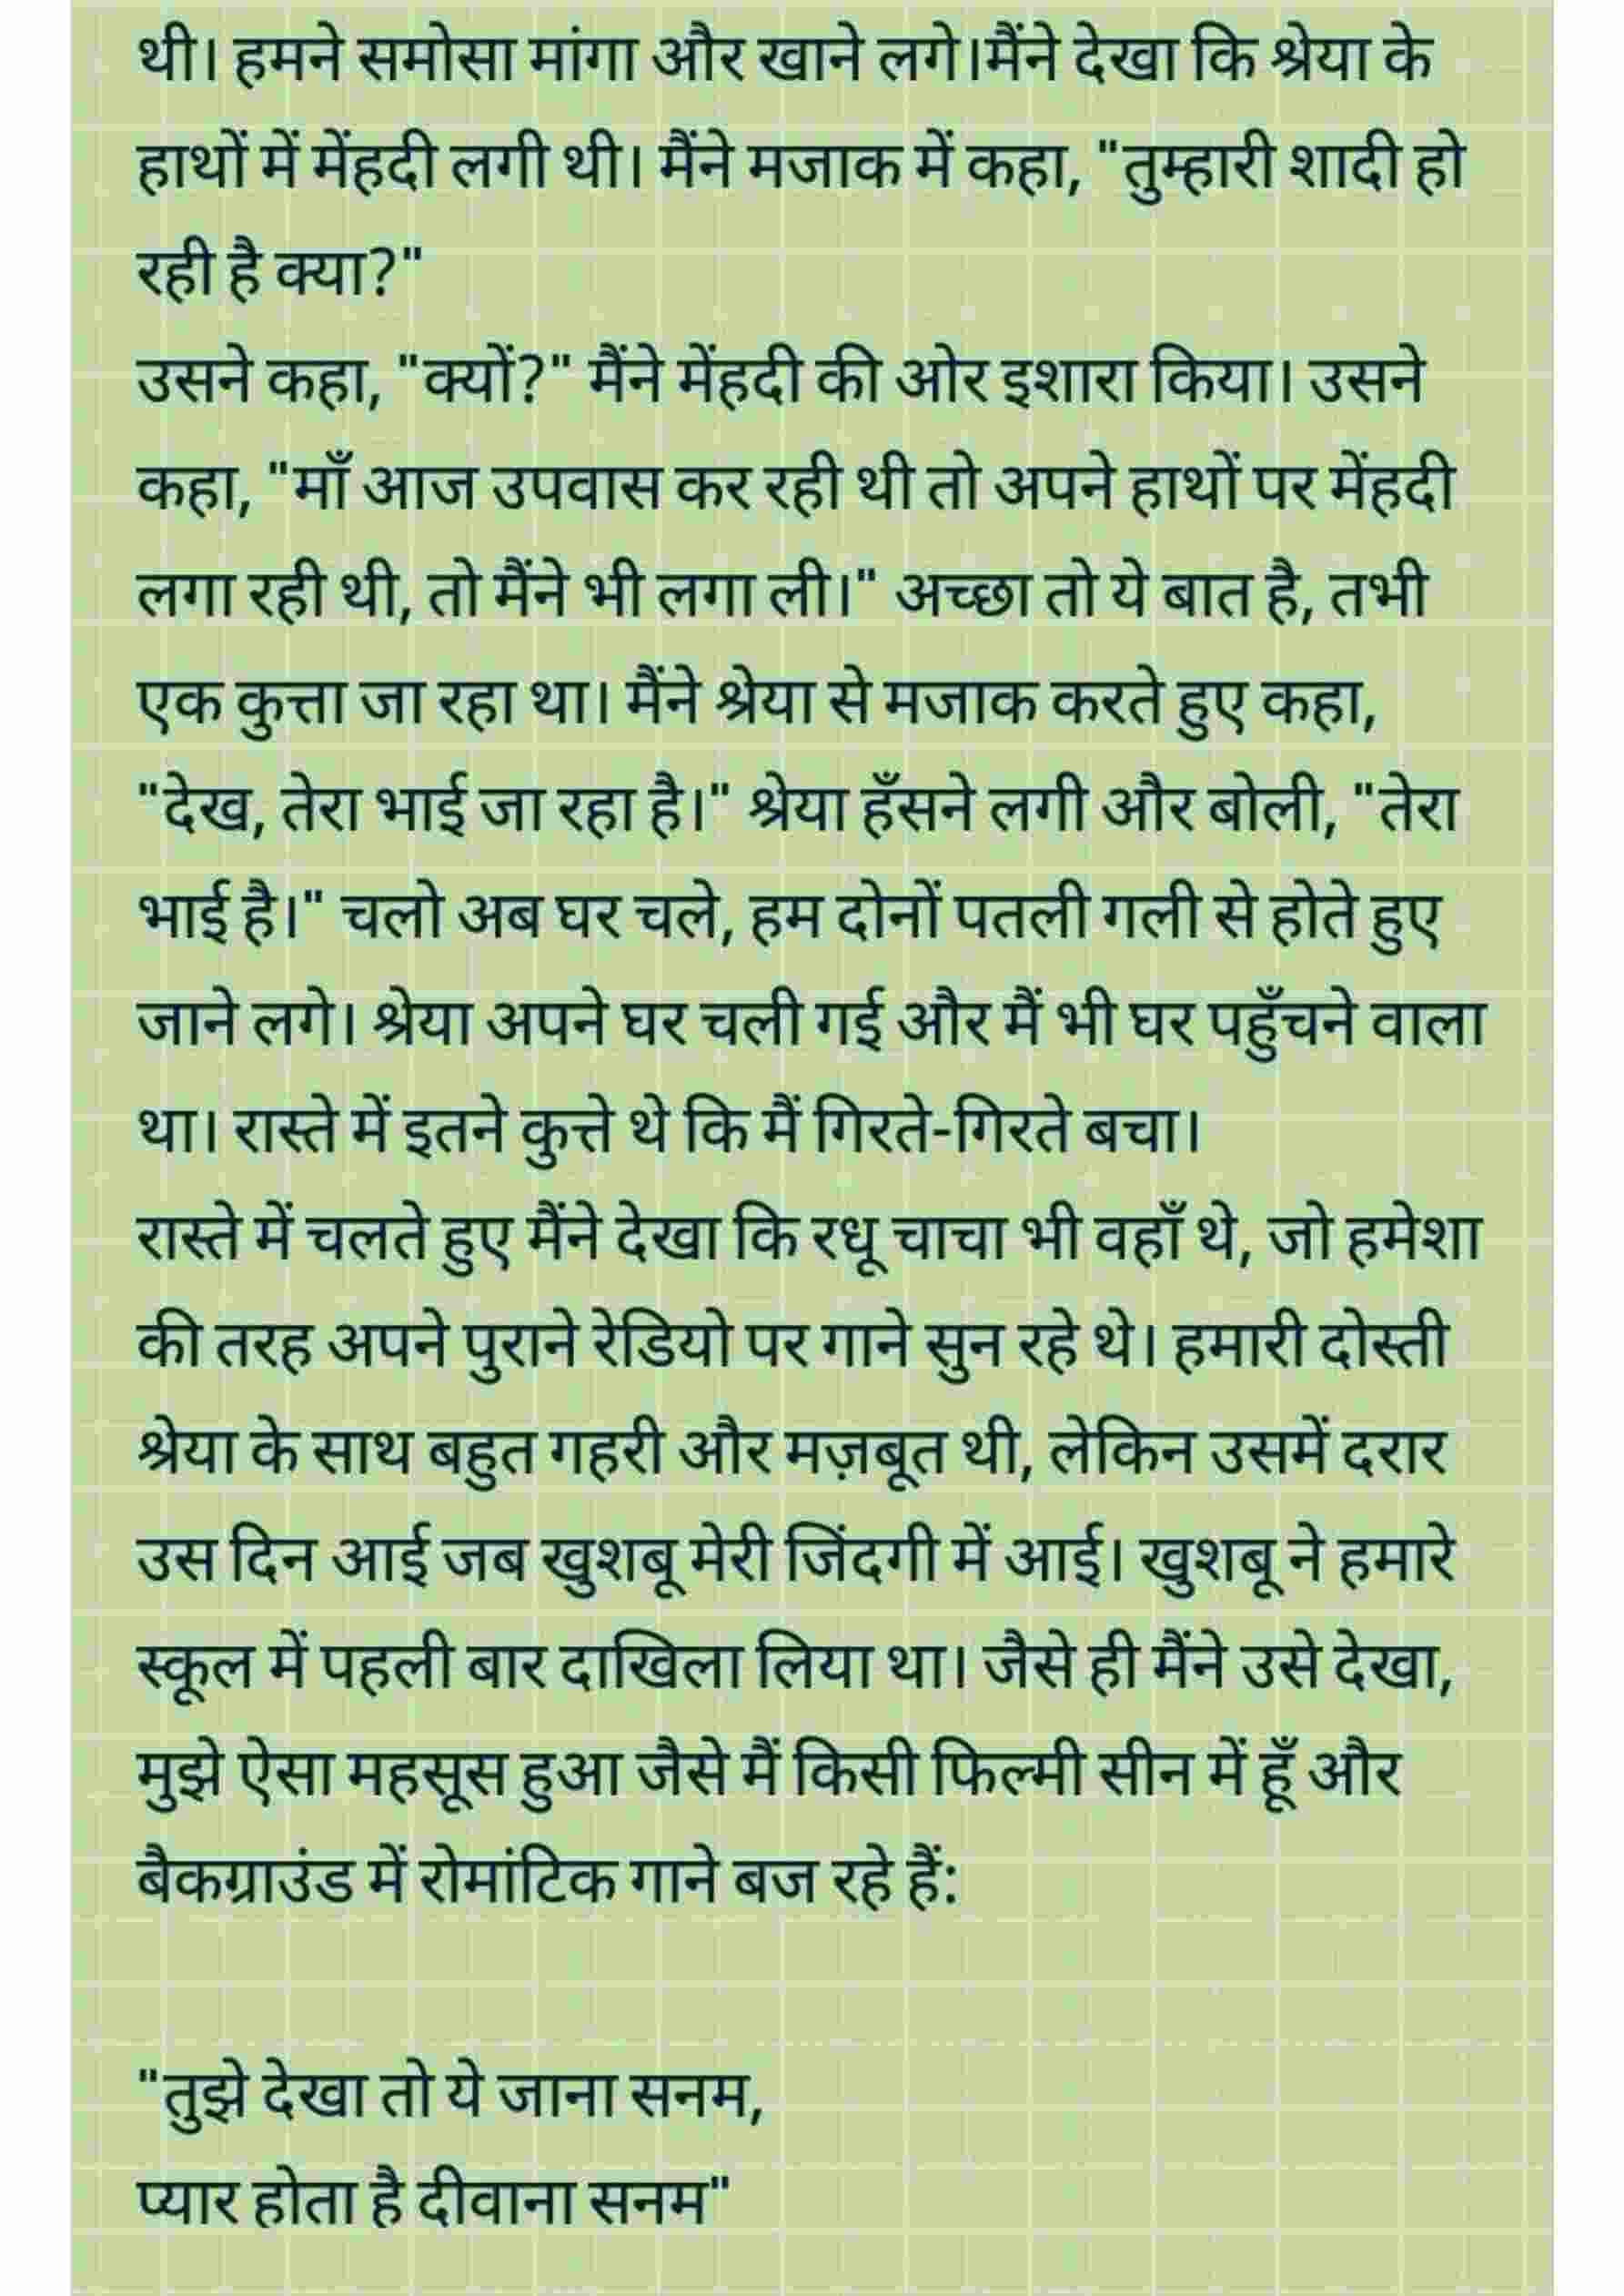 थी। हमने समोसा मांगा और खाने लगे।मैंने देखा कि श्रेया के
हाथों में मेंहदी लगी थी। मैंने मजाक में कहा, "तुम्हारी शादी हो
रही है क्या?"
उसने कहा, "क्यों?" मैंने मेंहदी की ओर इशारा किया। उसने
कहा, "माँ आज उपवास कर रही थी तो अपने हाथों पर मेंहदी
लगा रही थी, तो मैंने भी लगा ली।" अच्छा तो ये बात है, तभी
एक कुत्ता जा रहा था। मैंने श्रेया से मजाक करते हुए कहा,
"देख, तेरा भाई जा रहा है।" श्रेया हँसने लगी और बोली, "तेरा
भाई है।" चलो अब घर चले, हम दोनों पतली गली से होते हुए
जाने लगे। श्रेया अपने घर चली गई और मैं भी घर पहुँचने वाला
था। रास्ते में इतने कुत्ते थे कि मैं गिरते-गिरते बचा।
रास्ते में चलते हुए मैंने देखा कि रधू चाचा भी वहाँ थे, जो हमेशा
की तरह अपने पुराने रेडियो पर गाने सुन रहे थे। हमारी दोस्ती
श्रेया के साथ बहुत गहरी और मज़बूत थी, लेकिन उसमें दरार
उस दिन आई जब खुशबू मेरी जिंदगी में आई। खुशबू ने हमारे
स्कूल में पहली बार दाखिला लिया था। जैसे ही मैंने उसे देखा,
मुझे ऐसा महसूस हुआ जैसे मैं किसी फिल्मी सीन में हूँ और
बैकग्राउंड में रोमांटिक गाने बज रहे हैं:
"तुझे देखा तो ये जाना सनम,
प्यार होता है दीवाना सनम"